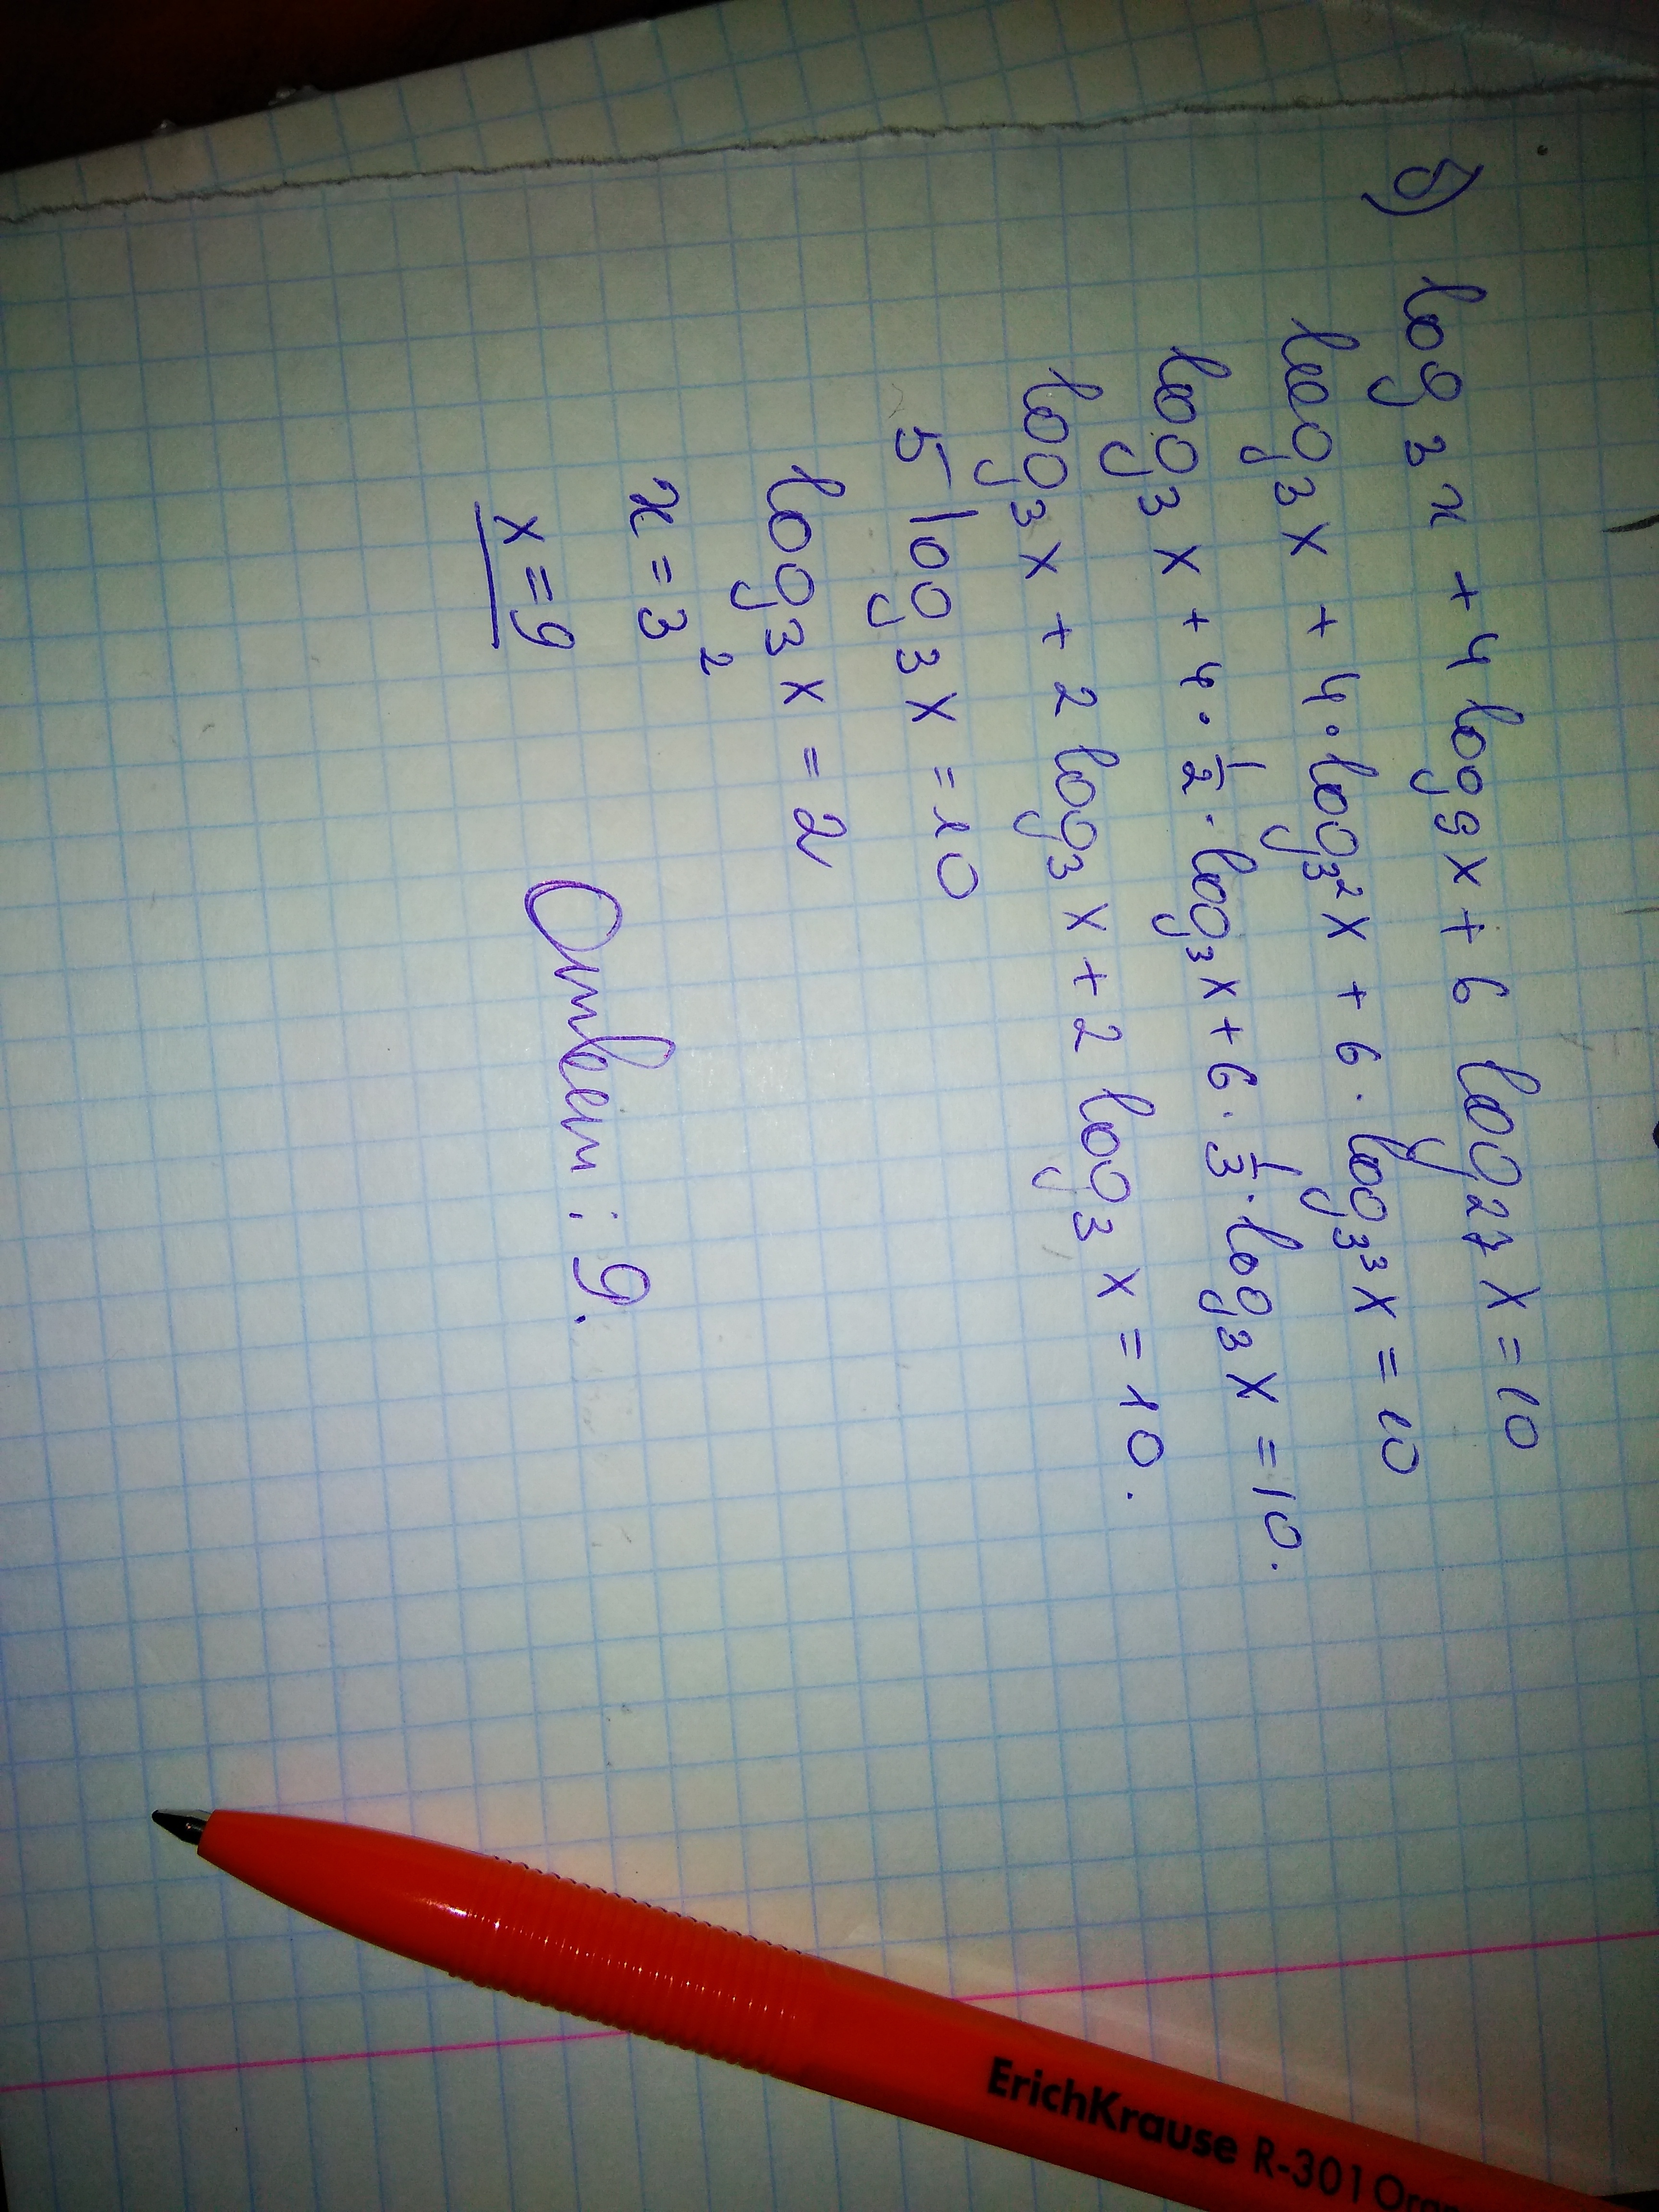 б) log₃x + 4 log₉x + 6 log₂₇x = 10
log₃x + 4·log₃²x + 6·log₃³x = 10
log₃x + 4·1/2·log₃x + 6·1/3·log₃x = 10.
log₃x + 2 log₃x + 2 log₃x = 10.
5 log₃x = 10
log₃x = 2
x = 3²
x = 9
Ответ: 9.
ErichKrause R-301